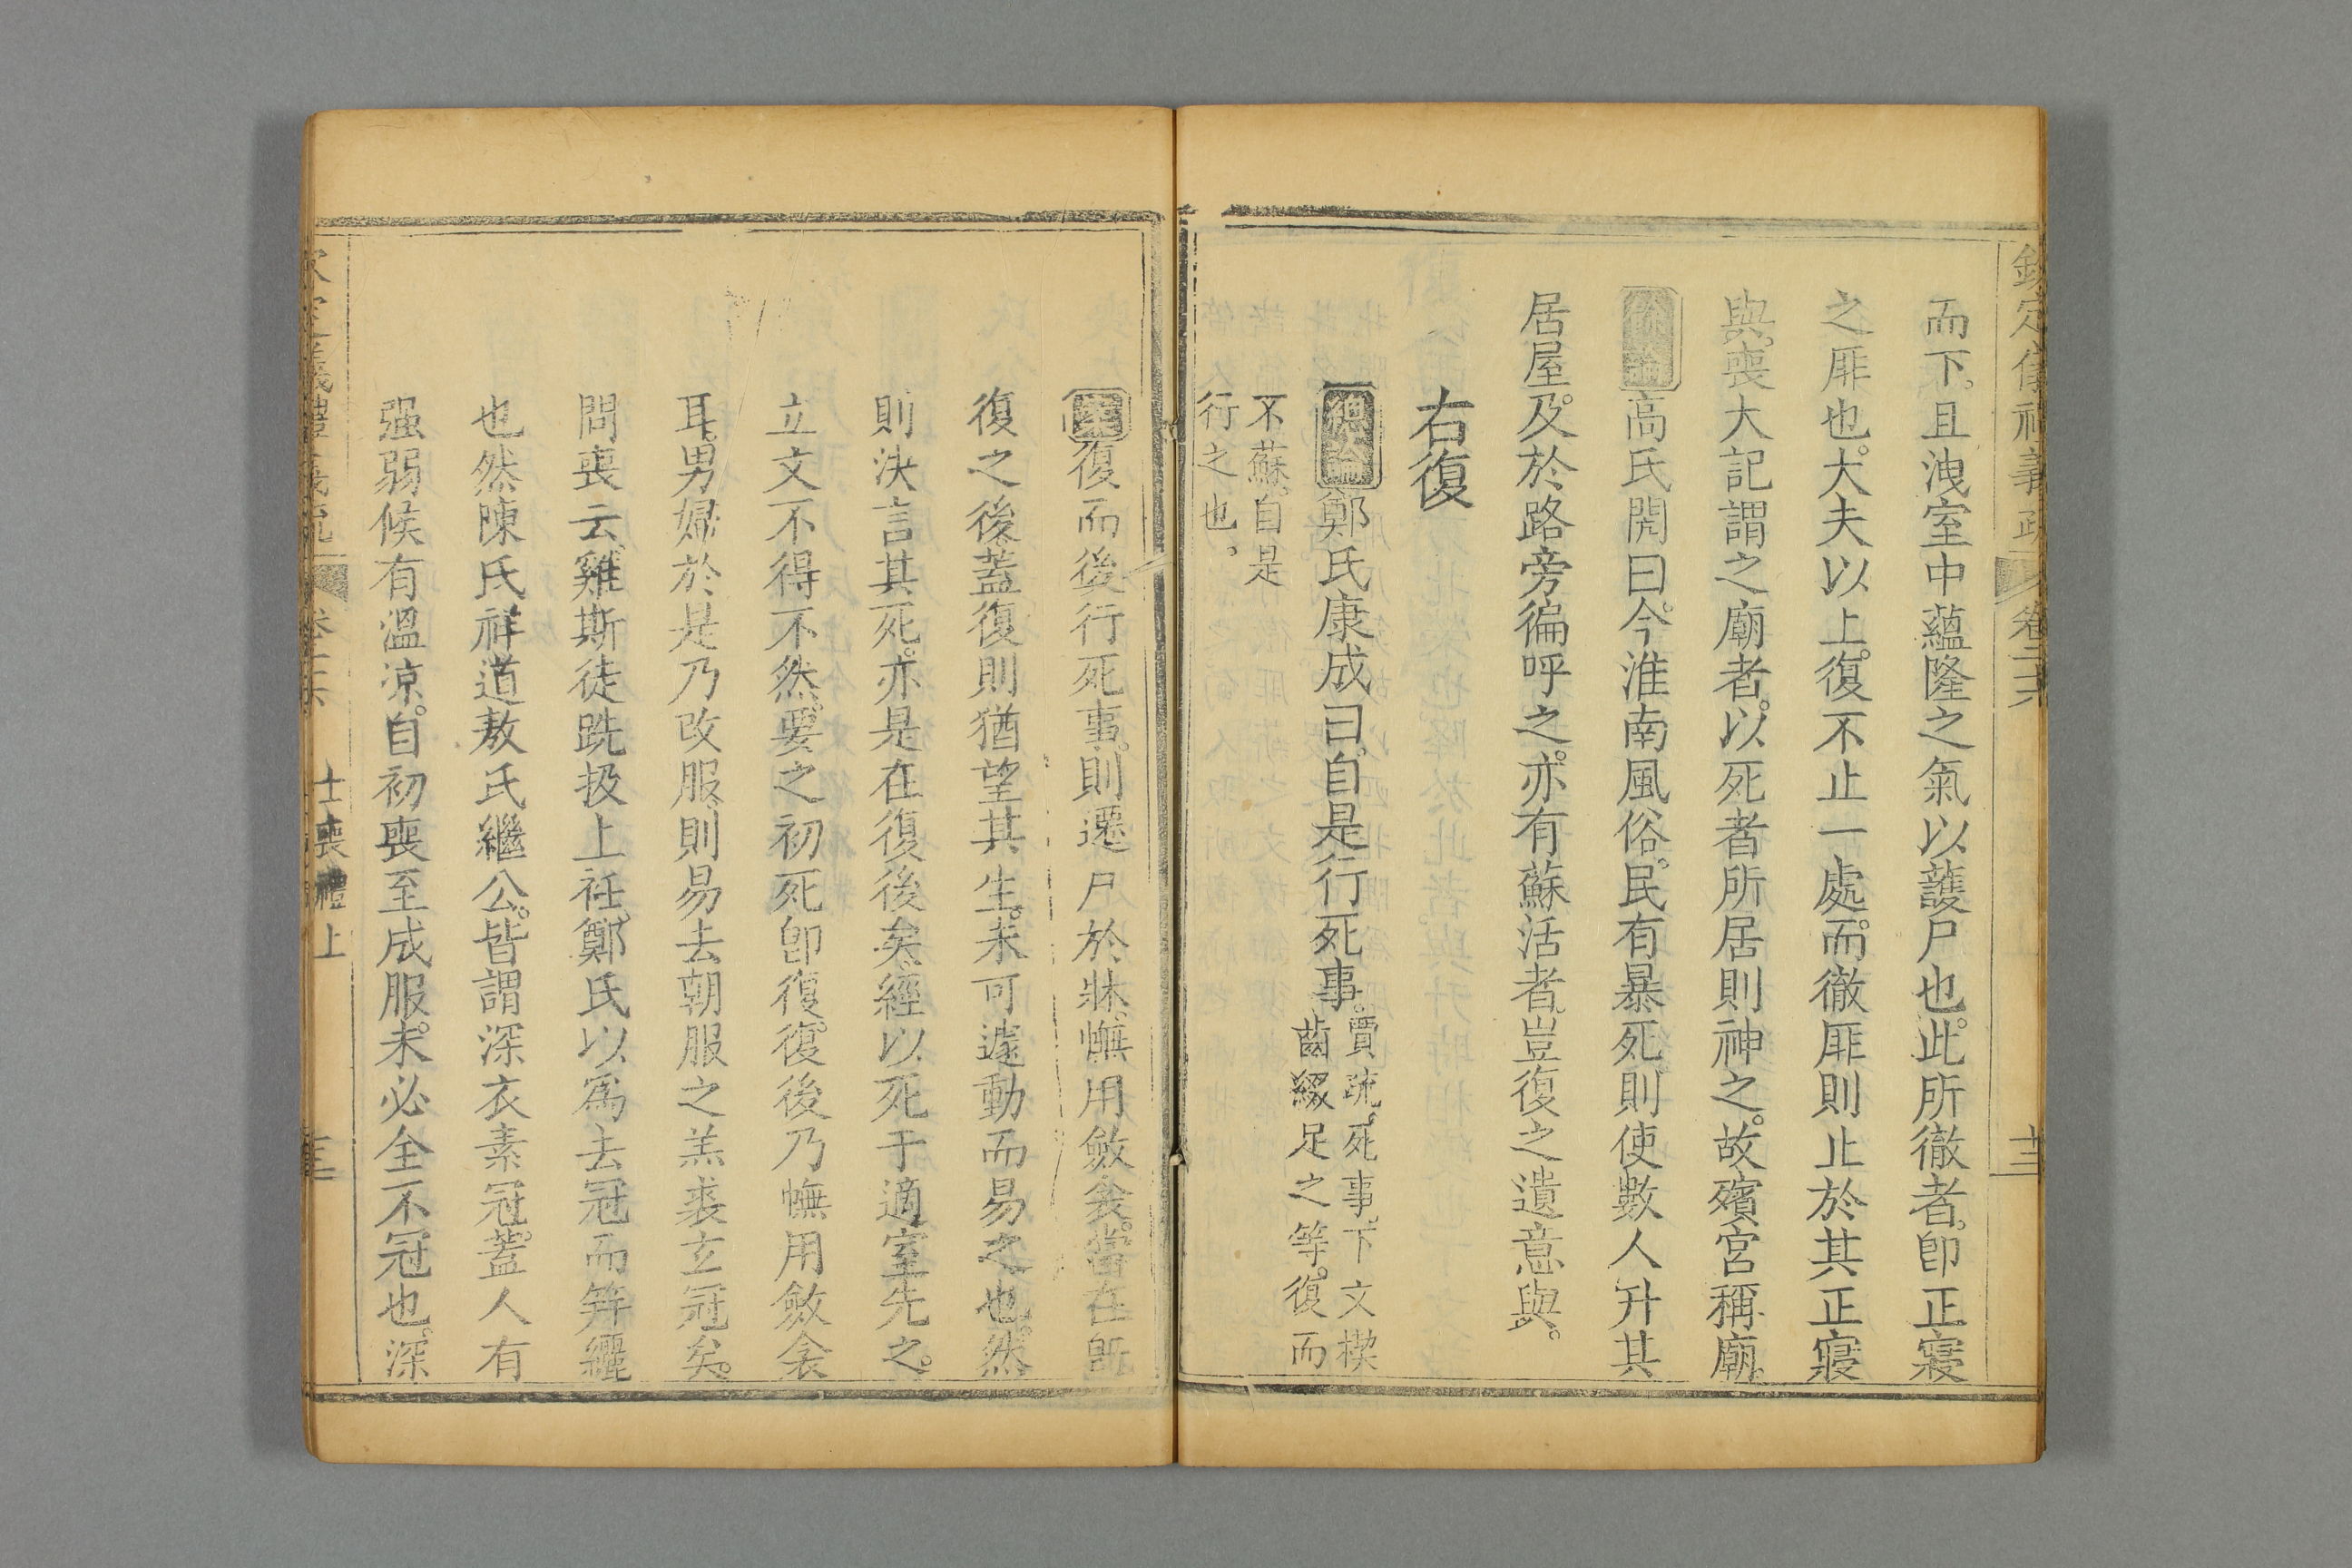 而下。且洩室中蘊隆之氣以護尸也。此所徹者。卽正寢
之厞也。大夫以上。復不止一處。而徹厞則止於其正寢
與。喪大記謂之廟者。以死者所居則神之。故殯宮稱廟。
餘論高氏閌曰。今淮南風俗。民有暴死。則使數人升其
居屋。及於路旁徧呼之。亦有蘇活者。豈復之遺意與。
右復
總論鄭氏康成曰。自是行死事。賈疏。死事。下文楔
齒綴足之等。復而
不蘇。自是
行之也。
案復而後行死事。則遷尸於牀。幠用斂衾。當在旣
復之後。蓋復則猶望其生。未可遽動而易之也。然
則決言其死。亦是在復後矣。經以死于適室先之。
立文不得不然。要之初死卽復。復後乃幠用斂衾
耳。男婦於是乃改服。則易去朝服之羔裘玄冠矣。
問喪云。雞斯徒跣扱上衽。鄭氏以爲去冠而笄纚
也。然陳氏祥道敖氏繼公。皆謂深衣素冠。蓋人有
强弱。候有溫涼。自初喪至成服。未必全不冠也。深
卷二十六
士喪禮上